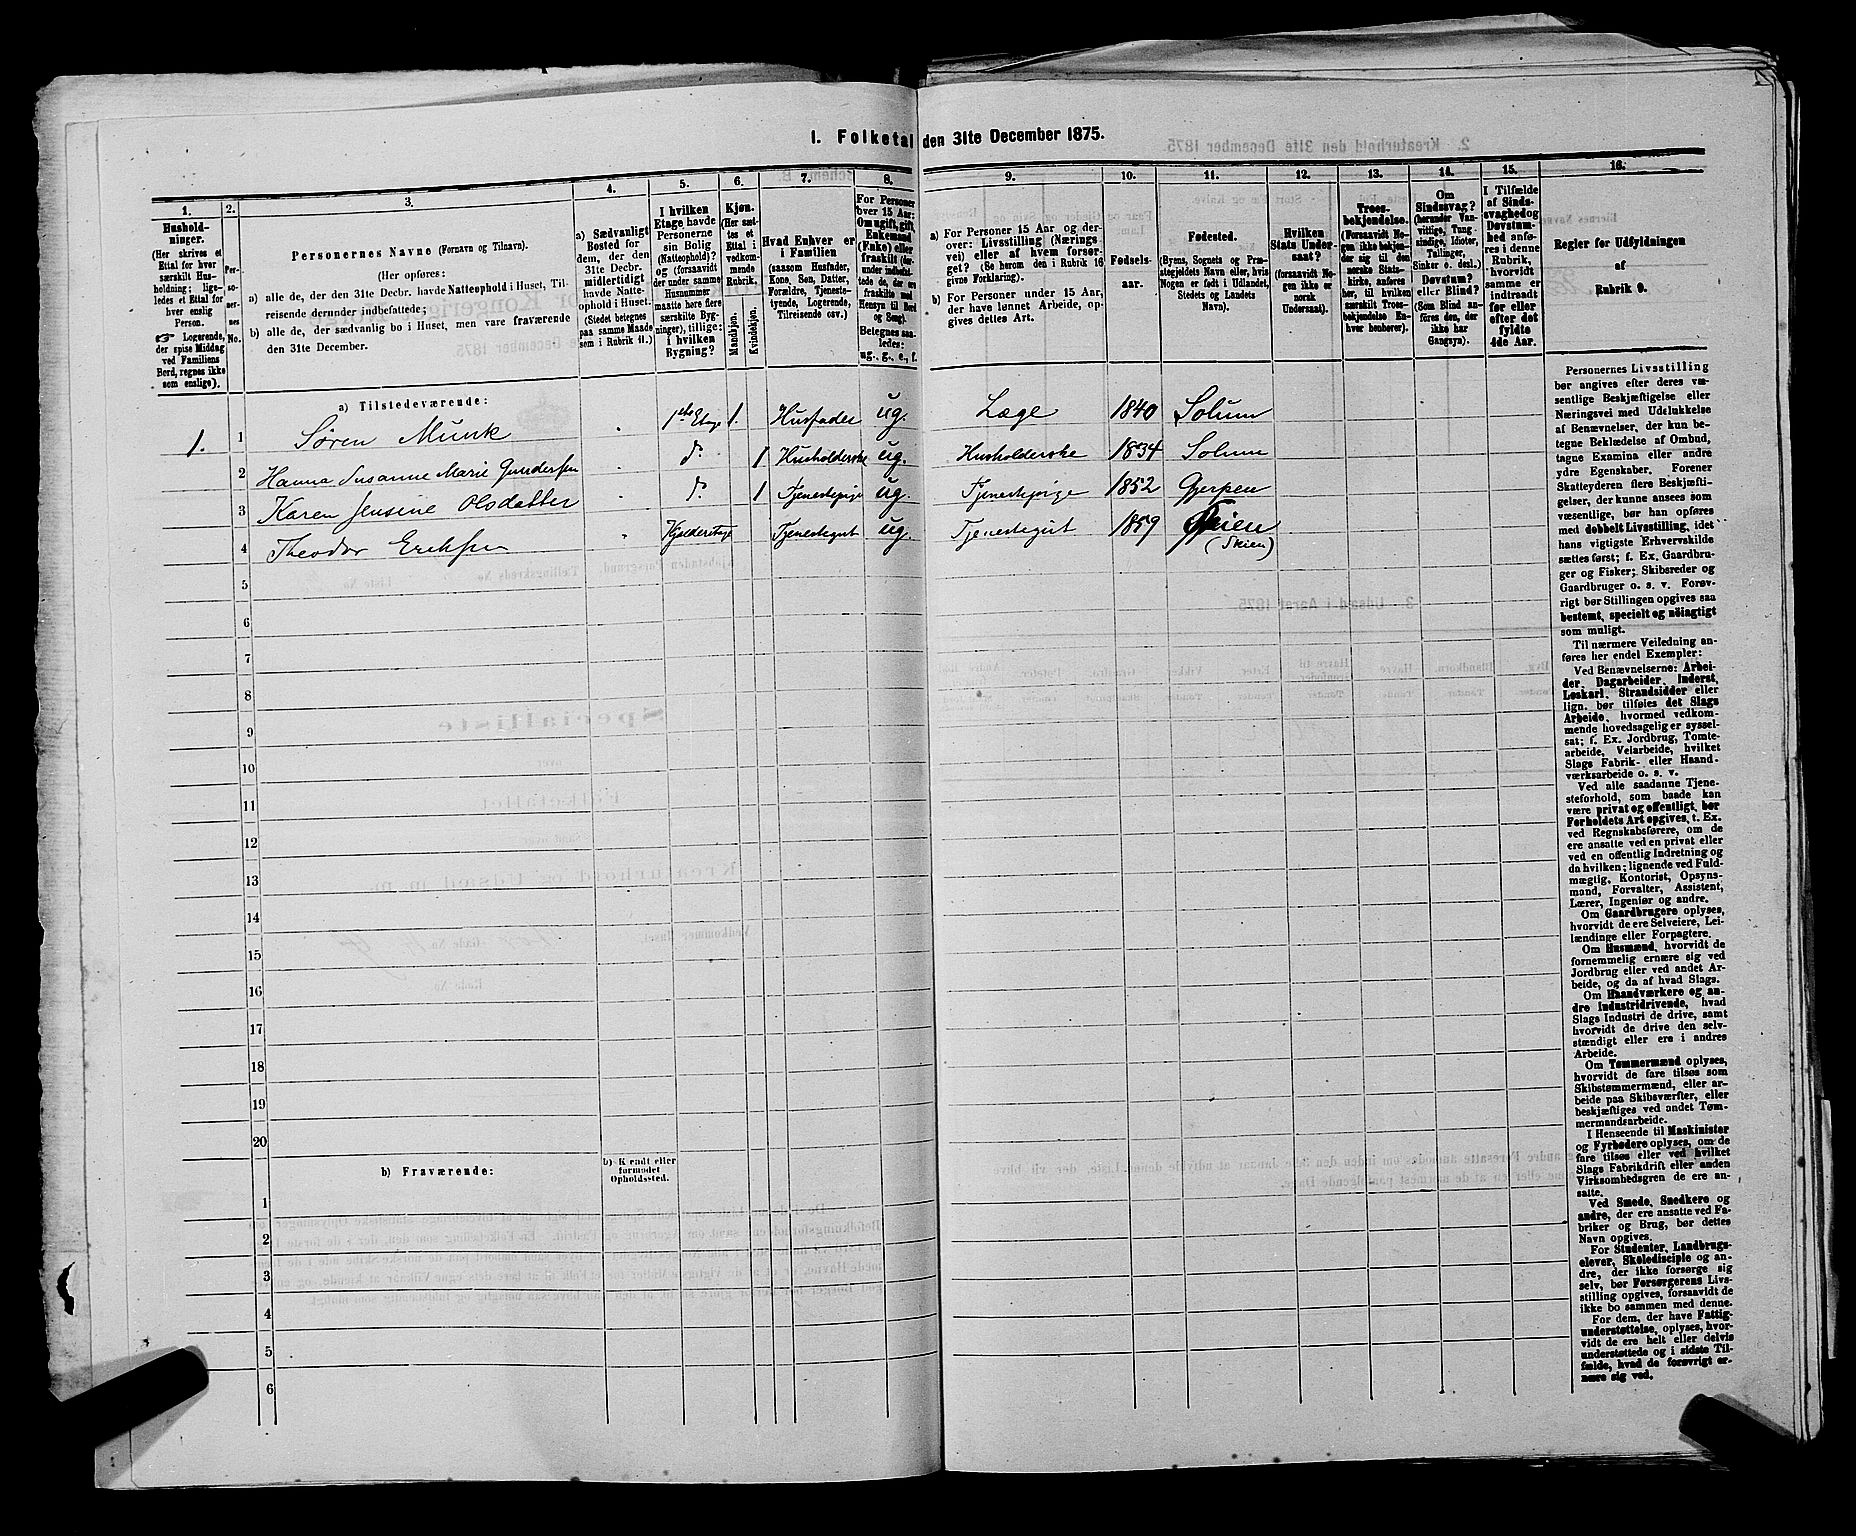 1. Folketal den 31te December 1875.
1. 2. 3. 4. 5. 6. 7. 8. 9. 10. 11. 12. 13. 14. 15. 16.
Hushold-
ninger.
(Her skrives et
Ettal for hver
særskilt Hus-
holdning; lige-
ledes et Ettal for
hver enslig
Person.
☞ Logerende,
der spise Middag
ved Familiens
Bord, regnes ikke
som enslige).
Per-
so-
ner-
nes
No.
Personernes Navne (Fornavn og Tilnavn).
(Her opføres:
a) alle de, der den 31te Decbr. havde Natteophold i Huset, Til-
reisende derunder indbefattede;
b) alle de, der sædvanlig bo i Huset, men vare fraværende
den 31te December.
a) Sædvanligt
Bosted for
dem, der den
31te Decbr.
midlertidigt
havde Natte-
ophold i Huset.
(Stedet betegnes
paa samme Maade
som i Rubrik 11.)
I hvilken
Etage havde
Personerne
sin Bolig
(Natteophold)?
og (forsaavidt
der under samme
Husnummer
maatte høre flere
særskilte Byg-
ninger), tillige:
i hvilken
Bygning?
Kjøn.
(Her sæt-
tes et
Ettal i
vedkom-
mende
Rubrik.
Mandkjøn.
Kvindekjøn.
Hvad Enhver er
i Familien
(saasom Husfader,
Kone, Søn, Datter,
Forældre, Tjeneste-
tyende, Logerende,
Tilreisende osv.)
For Personer
over 15 Aar:
Om ugift, gift,
Enkemand
(Enke) eller
fraskilt (der-
under indbefat-
tede de, der ere
fraskilte med
Hensyn til Bord
og Seng).
Betegnes saa-
ledes:
ug., g., e., f.
a) For Personer 15 Aar og der-
over: Livsstilling (Nærings-
vei) eller af hvem forsør-
get? (Se herom den i Rubrik 16
givne Forklaring).
b) For Personer under 15 Aar,
der have lønnet Arbeide, op-
gives dettes Art.
Fødsels-
aar.
Fødested.
(Byens, Sognets og Præ-
stegjeldets Navn eller, hvis
Nogen er født i Udlandet,
Stedets og Landets
Navn).
Hvilken
Stats Under-
saat?
(forsaavidt No-
gen ikke er
norsk
Undersaat).
Troes-
bekjendelse.
(Forsaavidt No-
gen ikke bekjen-
der sig til den
norske Stats-
kirke, anføres
her, til hvilken
særskilt Troes-
bekjendelse En-
hver henhører).
Om
Sindssvag?
(herunder Van-
vittige, Tung-
sindige, Idioter,
Tullinger,
Sinker o. desl.)
Døvstum?
eller Blind?
(Som Blind an-
føres den, der
ikke har
Gangsyn).
I Tilfælde
af Sinds-
svaghed og
Døvstum-
hed anfø-
res i denne
Rubrik,
hvorvidt
samme er
indtraadt
før eller
efter det
fyldte
4de Aar.
Regler for Udfyldningen
af
Rubrik 9.
a) Tilstedeværende:
1. 1 Søren Munk 1ste Etage 1. Husfader ug. Læge 1840 Solum
2 Hanna Susanne Marie Gundersen do 1 Husholderske ug. Husholderske 1834 Solum
3 Karen Jensine Olsdatter do 1 Tjenestepige ug. Tjenestepige 1852 Gjerpen
4 Theodor Eriksen Kjelderetage Tjenestegut ug. Tjenestegut 1859 Skien
(Skien)
5
6
7
8
9
10
11
12
13
14
15
16
17
18
19
20
b) Fraværende:
b) Kjendt eller
formodet
Opholdssted.
1
2
3
4
5
6
Personernes Livsstilling
bør angives efter deres væ-
sentlige Beskjæftigelse eller
Næringsvei med Udelukkelse
af Benævnelser, der kun be-
tegne Beklædelse af Ombud,
tagne Examina eller andre
ydre Egenskaber. Forener
Skatteyderen flere Beskjæfti-
gelser, der kunne ansees som
væsentlige, bør han opføres
med dobbelt Livsstilling, idet
hans vigtigste Erhvervskilde
sættes først; f. Ex. Gaardbru-
ger og Fisker; Skibsreder og
Gaardbruger o. s. v. Forøv-
rigt bør Stillingen opgives saa
bestemt, specielt og nøiagtigt
som muligt.
Til nærmere Veiledning an-
føres her endel Exempler:
Ved Benævnelserne: Arbei-
der, Dagarbeider, Inderst,
Løskarl, Strandsidder eller
lign. bør tilføies det Slags
Arbeide, hvormed vedkom-
mende hovedsagelig er syssel-
sat; f. Ex. Jordbrug, Tomte-
arbeide, Veiarbeide, hvilket
Slags Fabrik- eller Haand-
værksarbeide o. s. v.
Ved alle saadanne Tjene-
steforhold, som baade kan
være privat og offentligt, bør
Forholdets Art opgives, t. Ex.
ved Regnskabsførere, om de
ere ansatte ved en privat eller
ved en offentlig Indretning og
da hvilken; lignende ved Fuld-
mægtig, Kontorist, Opsyns-
mand, Forvalter, Assistent,
Lærer, Ingeniør og andre.
Om Gaardbrugere oplyses,
hvorvidt de ere Selveiere, Lei-
lændinge eller Forpagtere.
Om Husmænd, hvorvidt de
fornemmelig ernære sig ved
Jordbrug eller ved andet Ar-
beide, og da af hvad Slags.
Om Haandværkere og an-
dre Industridrivende, hvad
Slags Industri de drive, samt
hvorvidt de drive den selv-
stændigt eller ere i andres
Arbeide.
Om Tømmermænd oplyses,
hvorvidt de fare tilsøs som
Skibstømmermænd, eller ar-
beide paa Skibsværfter, eller
beskjæftiges ved andet Tøm-
mermandsarbeide.
I Henseende til Maskinister
og Fyrbødere oplyses, om de
fare tilsøs eller ved hvilket
Slags Fabrikdrift eller anden
Virksomhedsgren de ere an-
satte.
Ved Smede, Snedkere og
andre, der ere ansatte ved Fa-
briker og Brug, bør dettes
Navn opgives.
For Studenter, Landbrugs-
elever, Skoledisciple og an-
dre, der ikke forsørge sig
selv, bør Forsørgerens Livs-
stilling opgives, forsaavidt de
ikke bo sammen med denne.
For dem, der have Fattig-
understøttelse, oplyses, hvor-
vidt de ere helt eller delvis
understøttede og i sidste Til-
fælde, hvad de forøvrigt er-
nære sig ved.